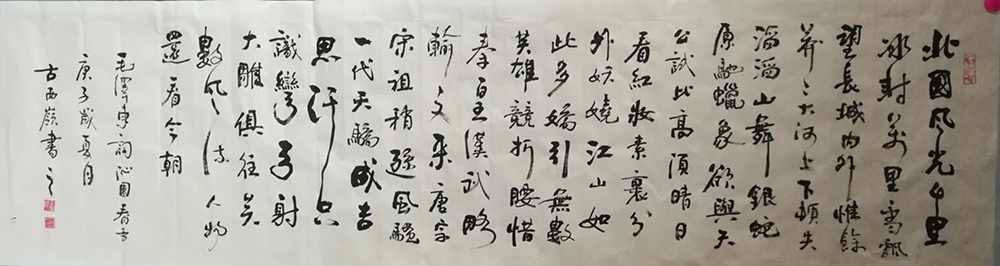 北國風光千里
冰封萬里雪飄
望長城內外惟餘
莽〻大河上下頓失
滔滔山舞銀蛇
原馳蠟象欲與天
公試比高須晴日
看紅妝素裹分
外妖嬈江山如
此多嬌引無數
英雄競折腰惜
秦皇漢武略
輸文采唐宗
宋祖稍遜風騷
一代天驕成吉
思汗只
識彎弓射
大雕俱往矣
數風流人物
還看今朝
毛澤東詞沁園春雪
庚子歲夏月
古西嶺書之